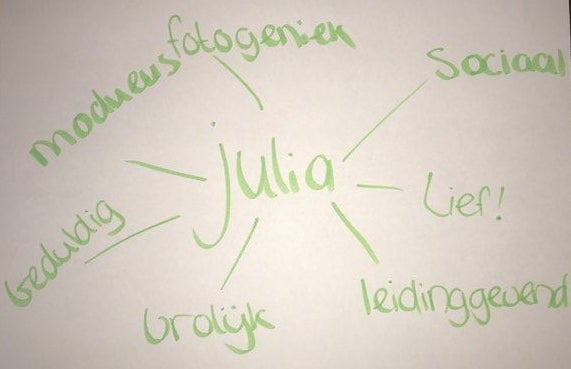 fotogeniek
modneus
Sociaal
julia
Lief!
Geduldig
leidinggevend
Vrolijk